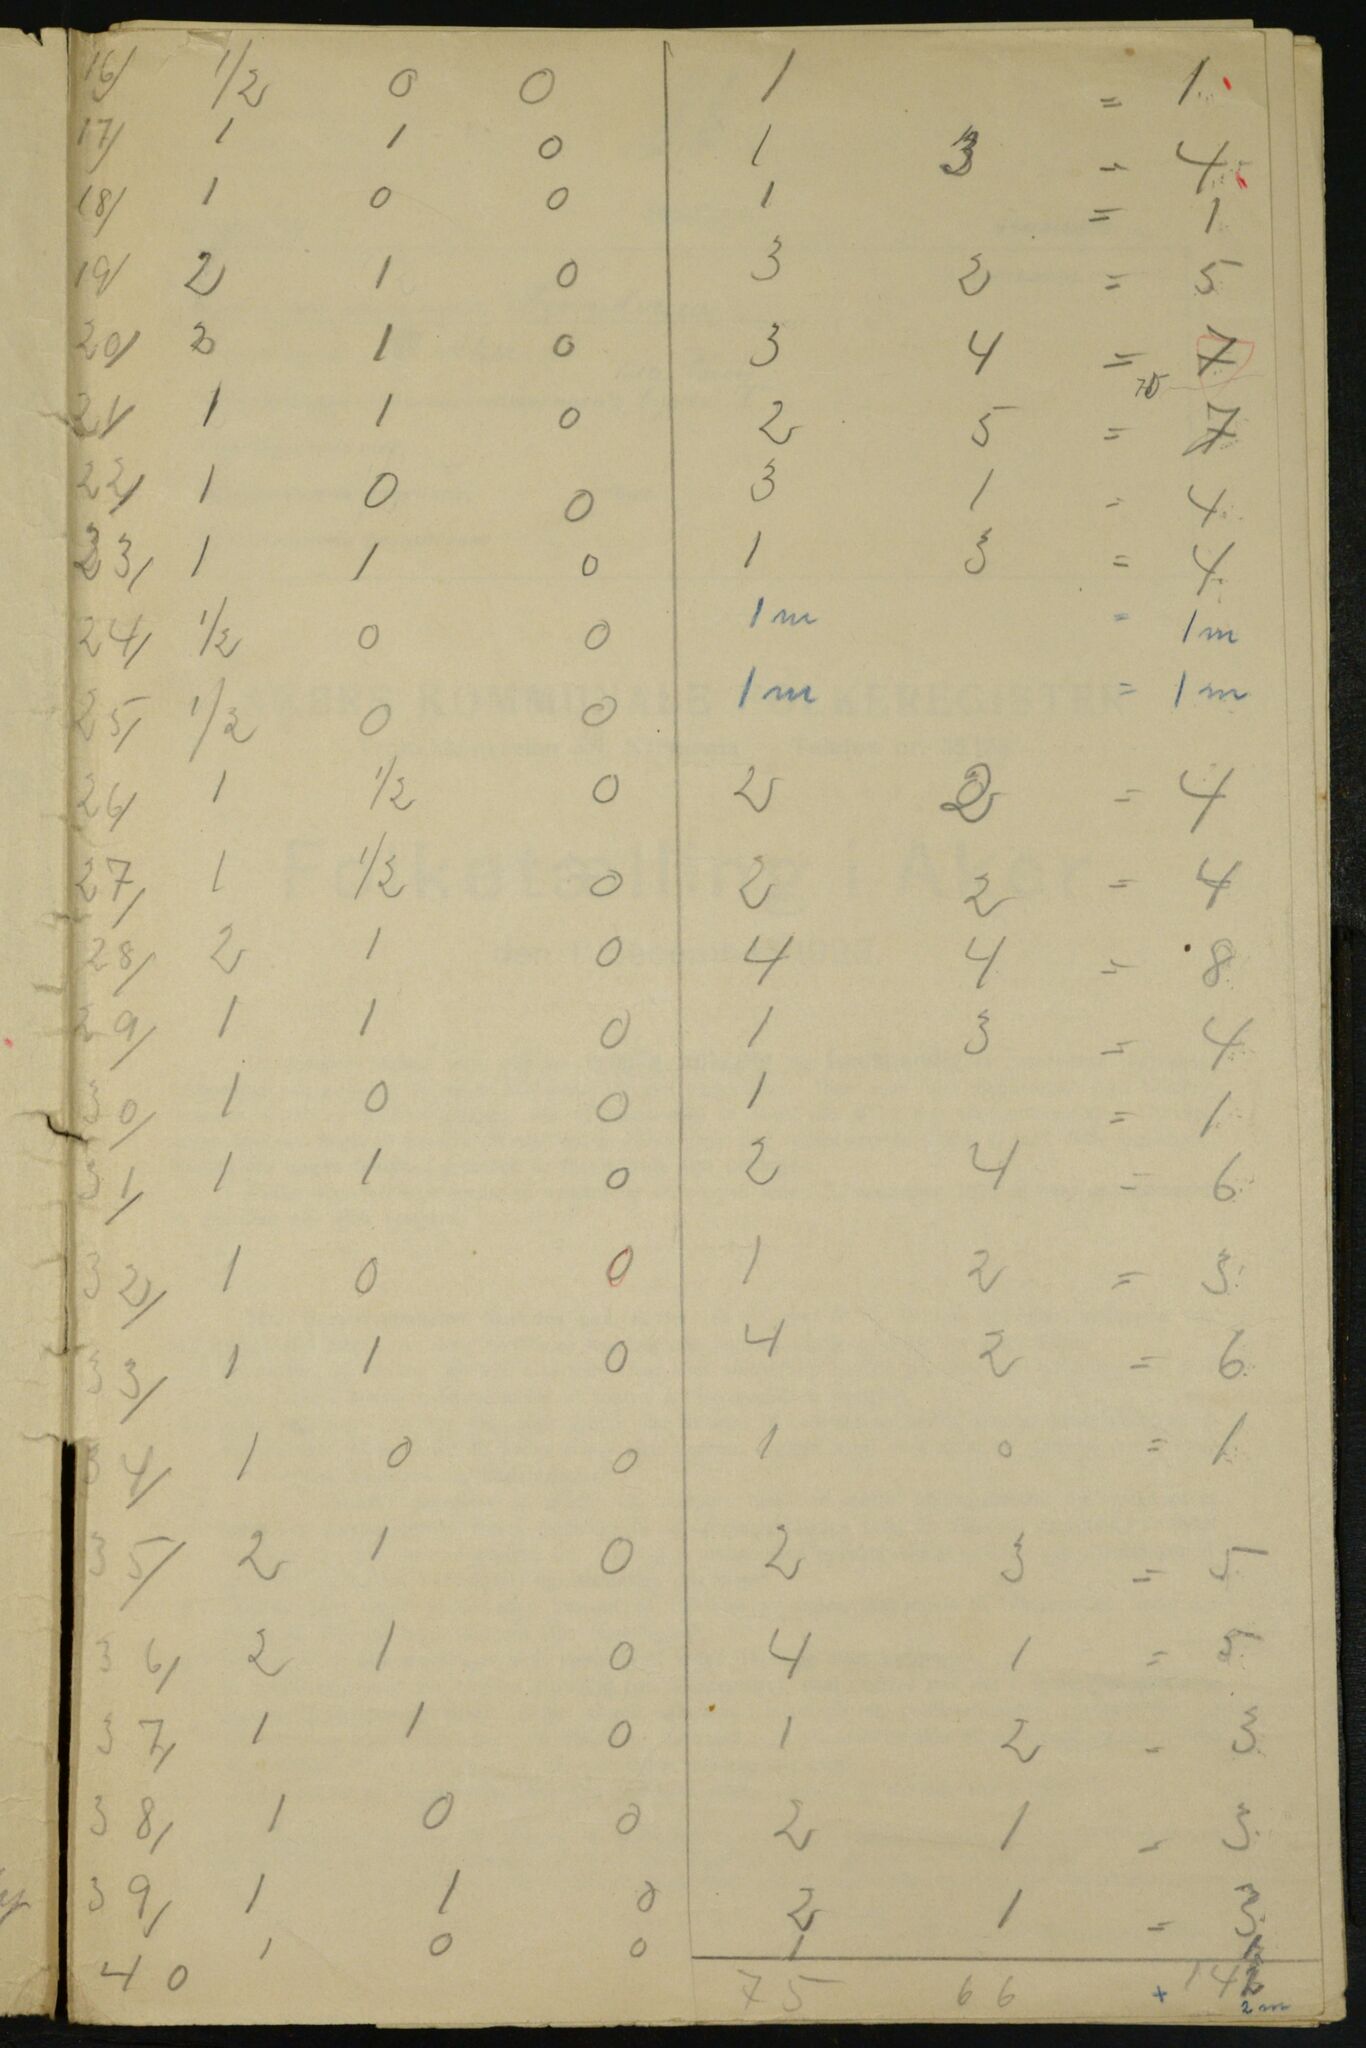 16/ 1/2 0 0 1 = 1
17/ 1 1 0 1 3 = 4
18/ 1 0 0 1 = 1
19/ 2 1 0 3 2 = 5
20/ 2 1 0 3 4 = 7
21/ 1 1 0 2 5 = 7
22/ 1 0 0 3 1 = 4
23/ 1 1 0 1 3 = 4
24/ 1/2 0 0 1m = 1m
25/ 1/2 0 0 1m = 1m
26/ 1 1/2 0 2 2 = 4
27/ 1 1/2 0 2 2 = 4
28/ 2 1 0 4 4 = 8
29/ 1 1 0 1 3 = 4
30/ 1 0 0 1 = 1
31/ 1 1 0 2 4 = 6
32/ 1 0 0 1 2 = 3
33/ 1 1 0 4 2 = 6
34/ 1 0 0 1 0 = 1
35/ 2 1 0 2 3 = 5
36/ 2 1 0 4 1 = 5
37/ 1 1 0 1 2 = 3
38/ 1 0 0 2 1 = 3
39/ 1 1 0 2 1 = 3
40 1 0 0 1 1
75 66 + 142
2m